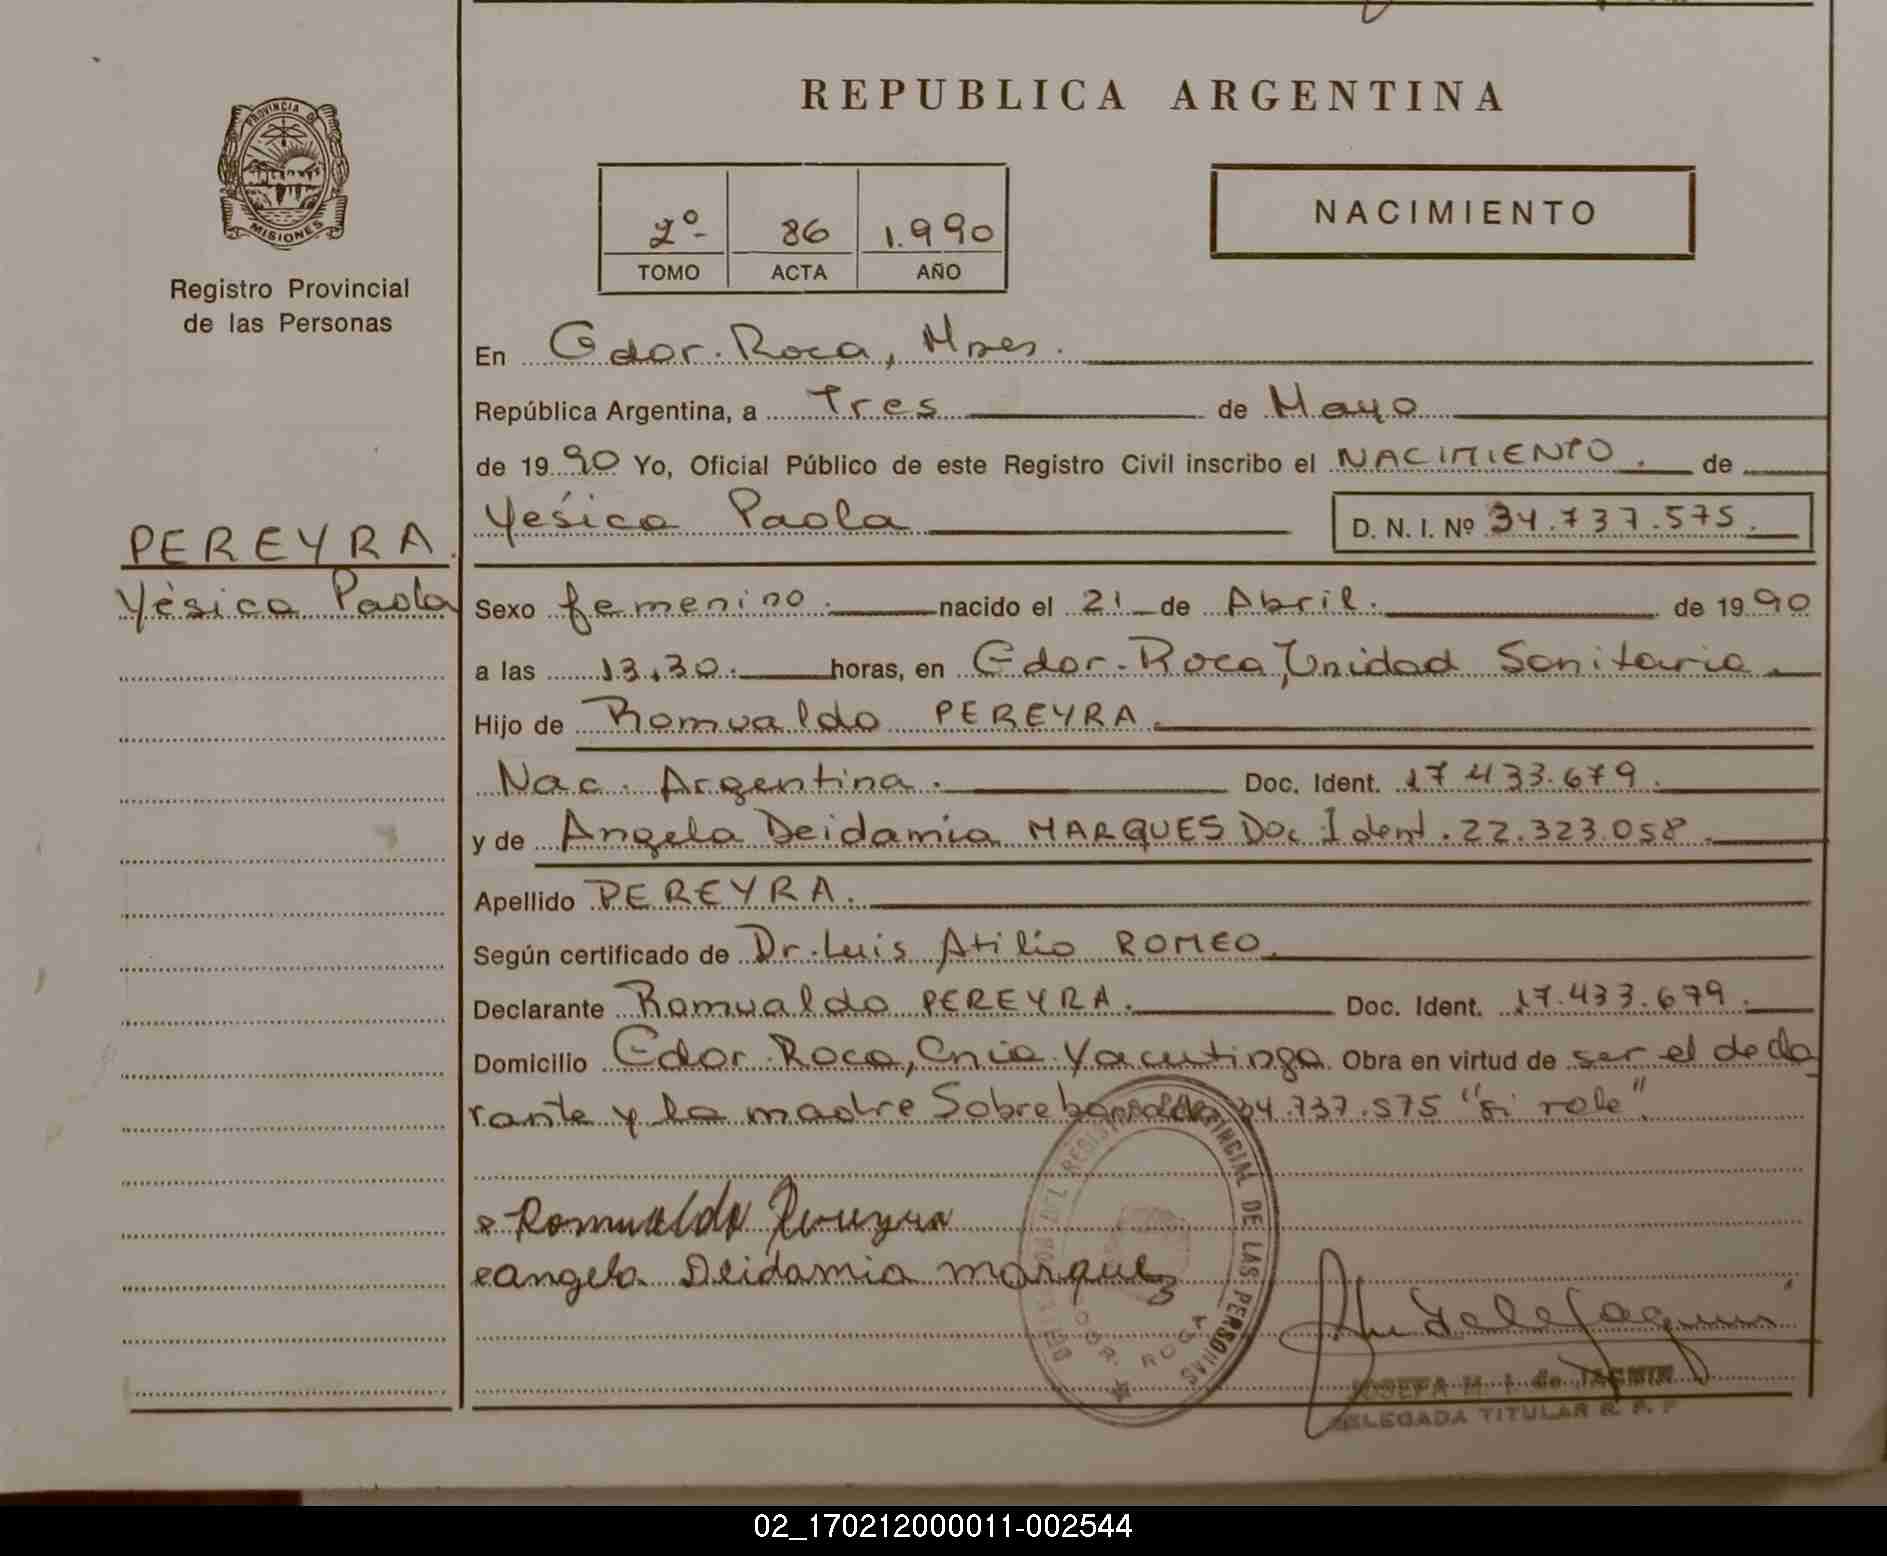 REPUBLICA ARGENTINA
PROVINCIA DE
MISIONES
Registro Provincial
de las Personas
2º 86 1.990
TOMO ACTA AÑO
NACIMIENTO
En Gdor. Roca, Mnes.
República Argentina, a Tres de Mayo
de 1990 Yo, Oficial Público de este Registro Civil inscribo el NACIMIENTO. de
Yésica Paola D. N. I. Nº 34.737.575.
PEREYRA.
Yésica Paola
Sexo femenino. nacido el 21 de Abril. de 1990
a las 13,30. horas, en Gdor. Roca, Unidad Sanitaria.
Hijo de Romualdo PEREYRA.
Nac. Argentina. Doc. Ident. 17.433.679.
y de Angela Deidamia MARQUES Doc. Ident. 22.323.058.
Apellido PEREYRA.
Según certificado de Dr. Luis Atilio ROMEO.
Declarante Romualdo PEREYRA. Doc. Ident. 17.433.679.
Domicilio Gdor. Roca, Cnia. Yacutinga Obra en virtud de ser el decla
rante y la madre Sobreborrado 34.737.575 "si vale".
Romualdo Pereyra
angela Deidamia marques
REGISTRO PROVINCIAL DE LAS PERSONAS
GOB. ROCA
JOSEFA M. I. de JACMIN
DELEGADA TITULAR R. P. P
02_170212000011-002544